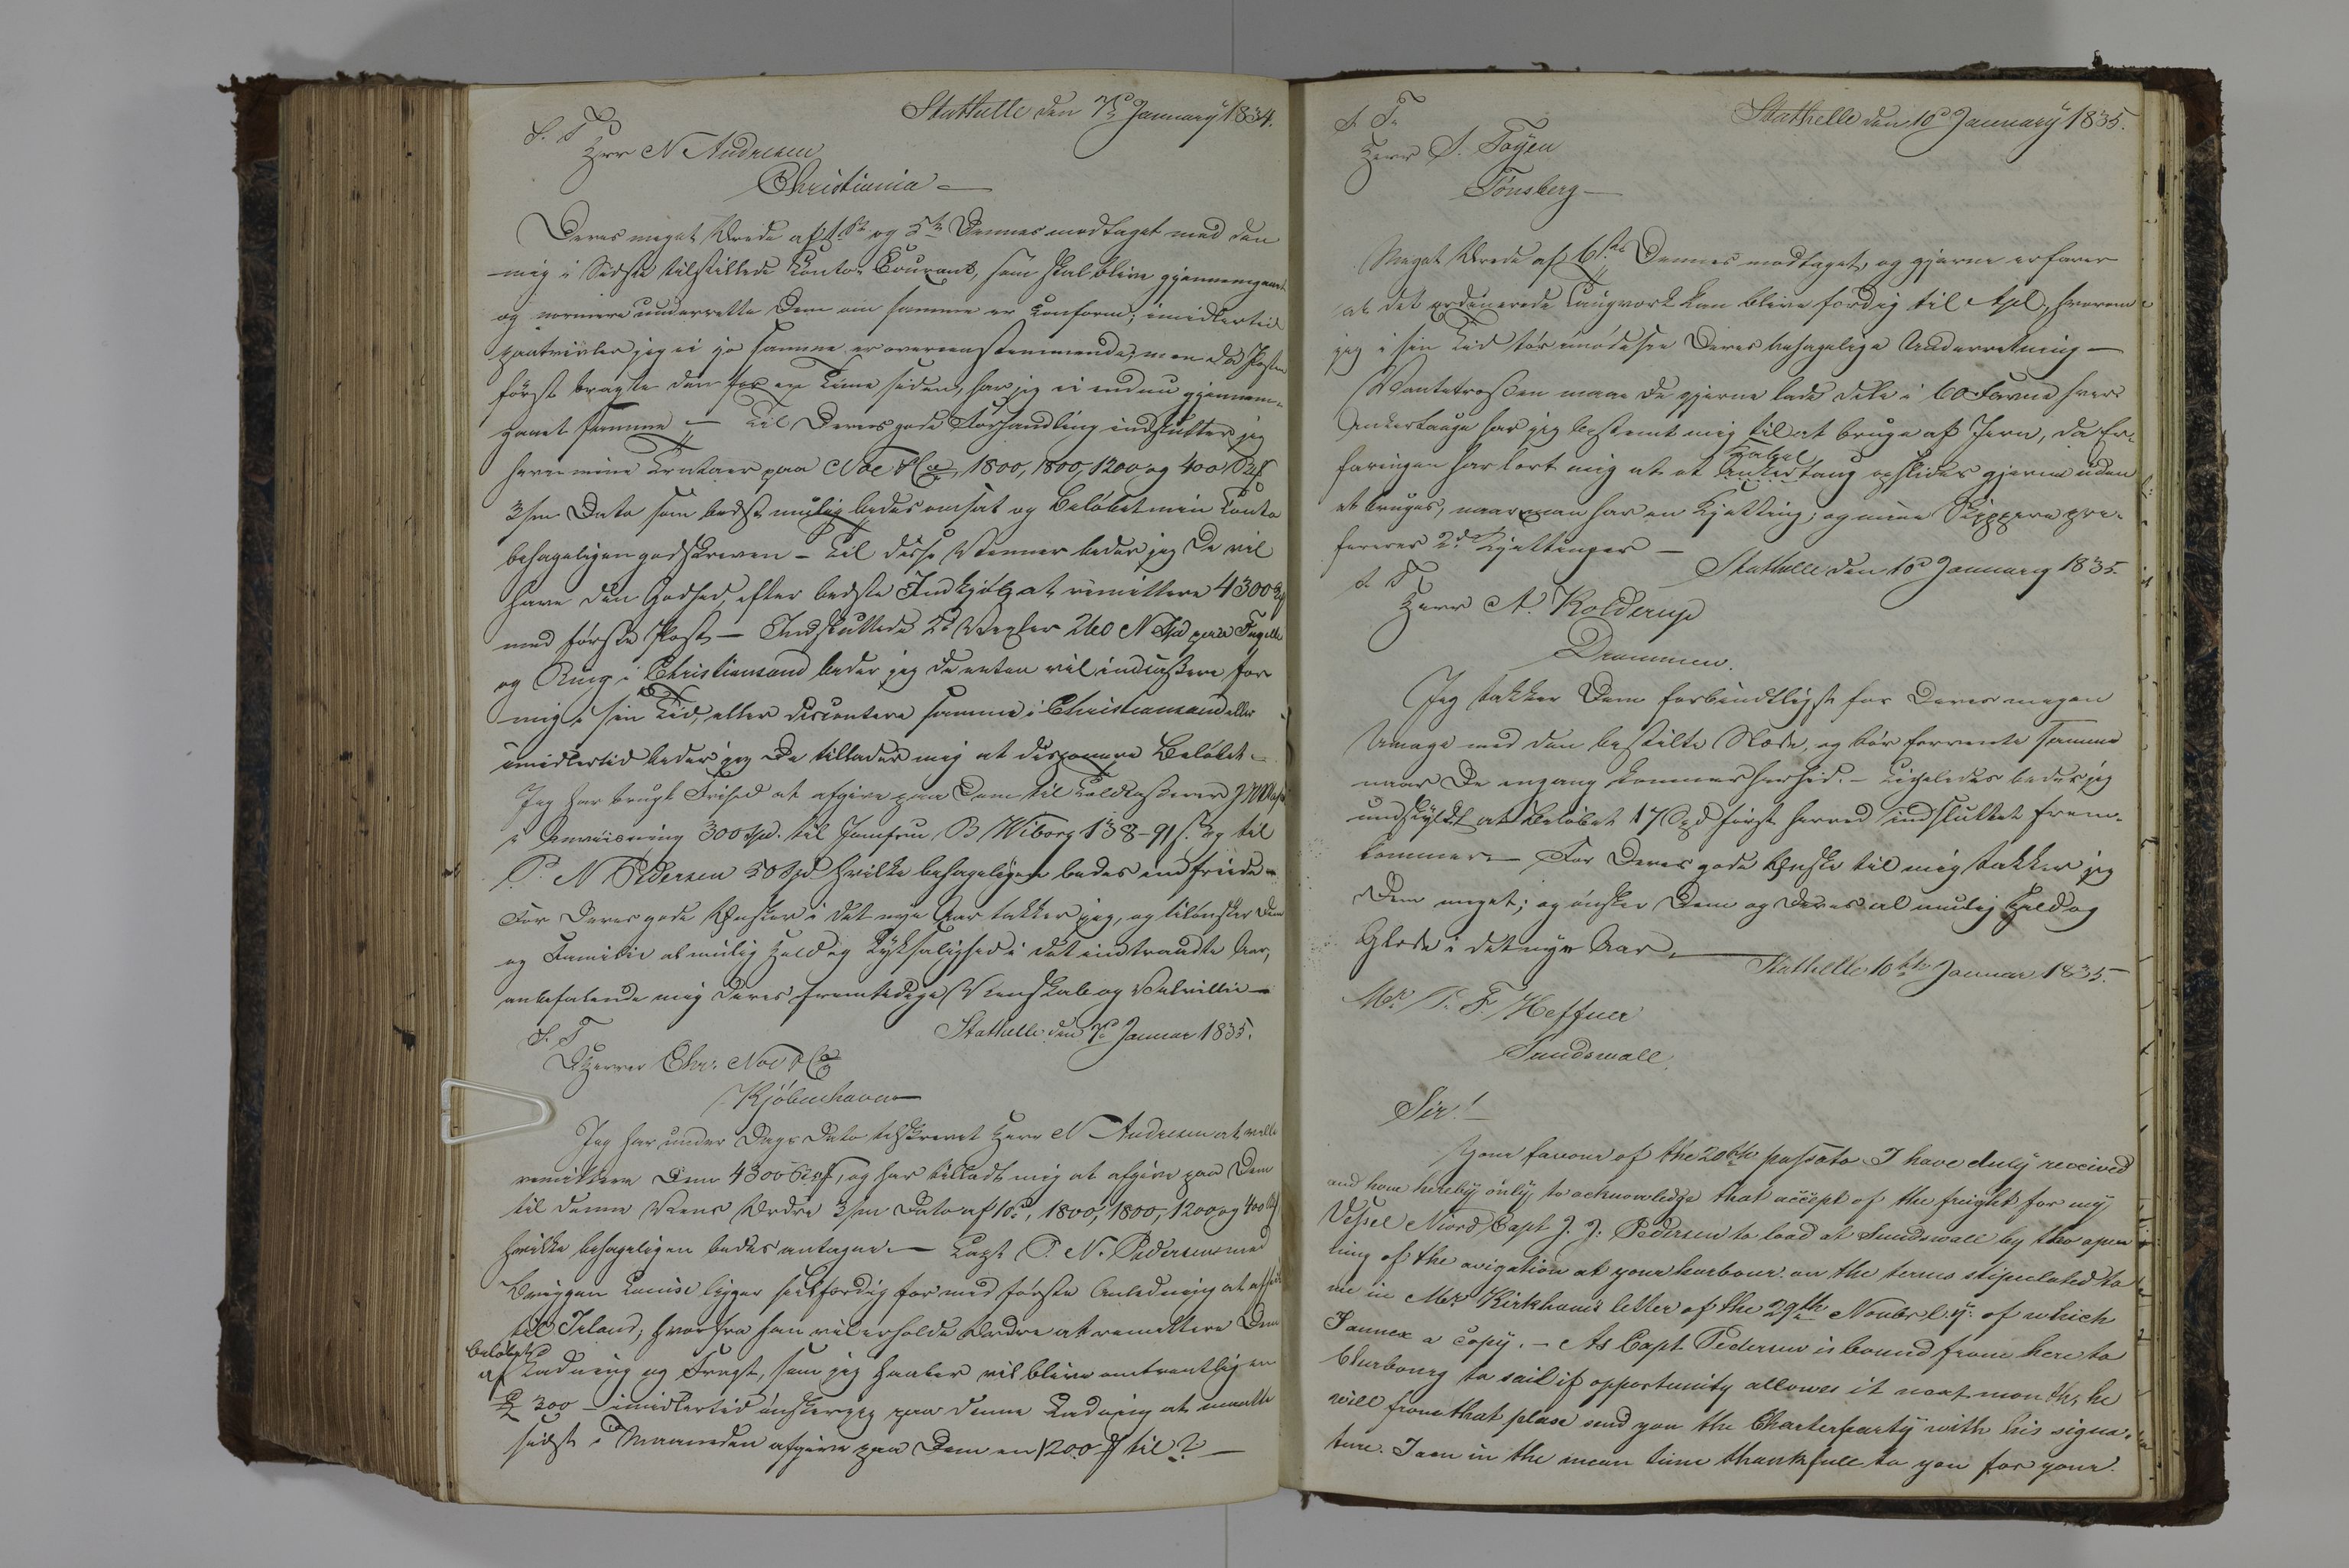 Stathelle den 7de January 1834.
S. T.
Herr N Andresen
Christiania
Deres meget Ærede af 1ste og 5te Dennes modtaget med den
mig i Sidste tilstillede Conto Courant, som skal blive gjennemgaaet
og nermere underrette Dem om samme er conform; imidlertid
paatvivler jeg ei jo samme er overeensstemmende, men da Posten
først bragte den for en Time siden, har jeg ei endnu gjennem-
gaaet samme – Til Deres gode Forhandling indslutter jeg
herved mine Tratter paa Noe & Co 1800, 1800, 1200 og 400
3/m Dato som bedst mulig bedes omsat og Beløbet min Conto
behageligen godskreven – Til disse Venner beder jeg De vil
have den Godhed, efter bedste Indkjøb at remittere 4300
med første Post – Indsluttede Vexler 260 Spd paa
og Ring i Christiansand beder jeg De enten vil indcassere for
mig i sin Tid, eller discontere samme i Christiansand eller
imidlertid beder jeg De tillader mig at disponere Beløbet –
Jeg har brugt Frihed at afgive paa Dem til Toldkasserer
i Anviisning 300 Spd. til Jomfru B Wiborg 138-91 s. og til
P. N Pedersen 50 Spd hvilke behageligen bedes indfriede –
For Deres gode Ønsker i det nye Aar takker jeg, og tilønsker Dem
og Familie al mulig Held og Lyksalighed i det indtraadte Aar,
anbefalende mig Deres fremtidige Venskab og Velvillie –
Stathelle den 7de Januar 1835.
S. T
DHerrer Chr. Noe & Co
Kjöbenhavn
Jeg har under Dags Dato tilskrevet Herr N Andresen at ville
remittere Dem 4300, og har tilladt mig at afgive paa Dem
til denne Vens Ordre 3/m Dato af 10de, 1800, 1800, 1200 og 400
hvilke behageligen bedes antagne. – Capt P. N. Pedersen med
Briggen Louise ligger seilfærdig for med første Anledning at afseile
til Irland; hvorfra han vil erholde Ordre at remittere Dem
Beløbet
af Ladning og Fragt, som jeg haaber vil blive omtrentligen
£ 300 – imidlertid ønsker jeg paa denne Ladning at maatte
sidst i Maaneden afgive paa Dem en 1200 til? –
Stathelle den 10de January 1835.
S. T.
Herr S. Foyen
Tönsberg
Meget Ærede af 6te Dennes modtaget, og gjerne erfarer
at det ordinerede Taugverk kan blive færdig til Apl, hvorom
jeg i sin Tid tør imødesee Deres behagelige Underretning –
Vantetrossen maae De gjerne lade dele i 60 Favne hver
Ankertauge har jeg bestemt mig til at bruge af Jern, da Er-
Kabel
faringen har lært mig at et Ankertaug opslides gjerne uden
at bruges, naar man har en Kjetting; og mine Skippere pre-
fererer 2de Kjettinger –
Stathelle den 10de January 1835.
S. T
Herr A. Kolderup
Drammen.
Jeg takker Dem forbindtligst for Deres megen
Umage med den bestilte Slæde, og tør forvente samme
naar De engang kommer herhid. – Ligeledes beder jeg
undskyldt at Beløbet 17 Spd først herved indsluttet frem-
kommer – For Deres gode Ønske til mig takker jeg
Dem meget; og ønsker Dem og Deres al mulig Held og
Glæde i det nye Aar.
Stathelle 10de Januar 1835.
Mr. P. F. Heffner
Sundswall.
Sir!
Your favour of the 20th passato I have duly received
and have hereby only to acknowledge that accept of the freight for my
Vessel Niord Capt J. J. Pedersen to load at Sundswall by the open
ning of the avigation at your harbour on the terms stipulated to
me in Mr. Kirkham's letter of the 29th Novbr l. y. of which
I annex a copy. – As Capt Pedersen is bound from here to
Cherbourg to sail if opportunity allowes it next month, he
will from that plase send you the Charterparty with his signa-
ture. I am in the mean time thankfull to you for your